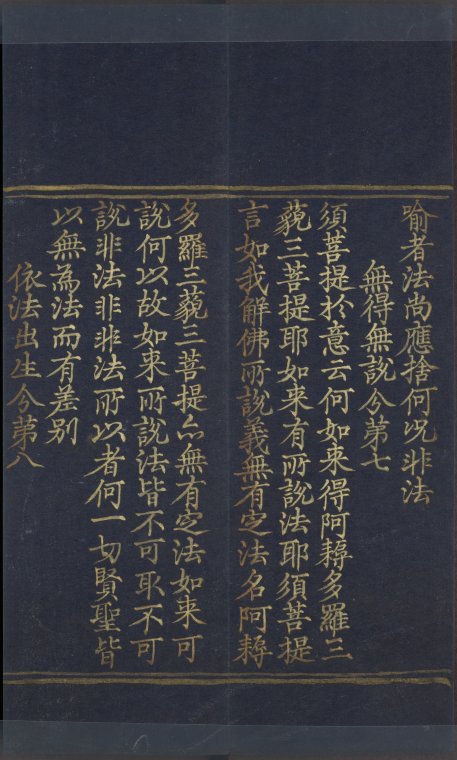 喻者法尚應捨何況非法
無得無說分第七
須菩提扵意云何如来得阿耨多羅三
藐三菩提耶如来有所說法耶須菩提
言如我解佛所說義無有定法名阿耨
多羅三藐三菩提亦無有定法如来可
說何以故如来所說法皆不可取不可
說非法非非法所以者何一切賢聖皆
以無為法而有差別
依法出生分第八